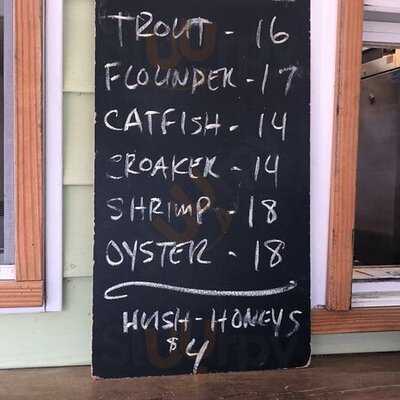 TROUT - 16
FLOUNDER - 17
CATFISH - 14
CROAKER - 14
SHRIMP - 18
OYSTER - 18
HUSH-HONEYS
$4